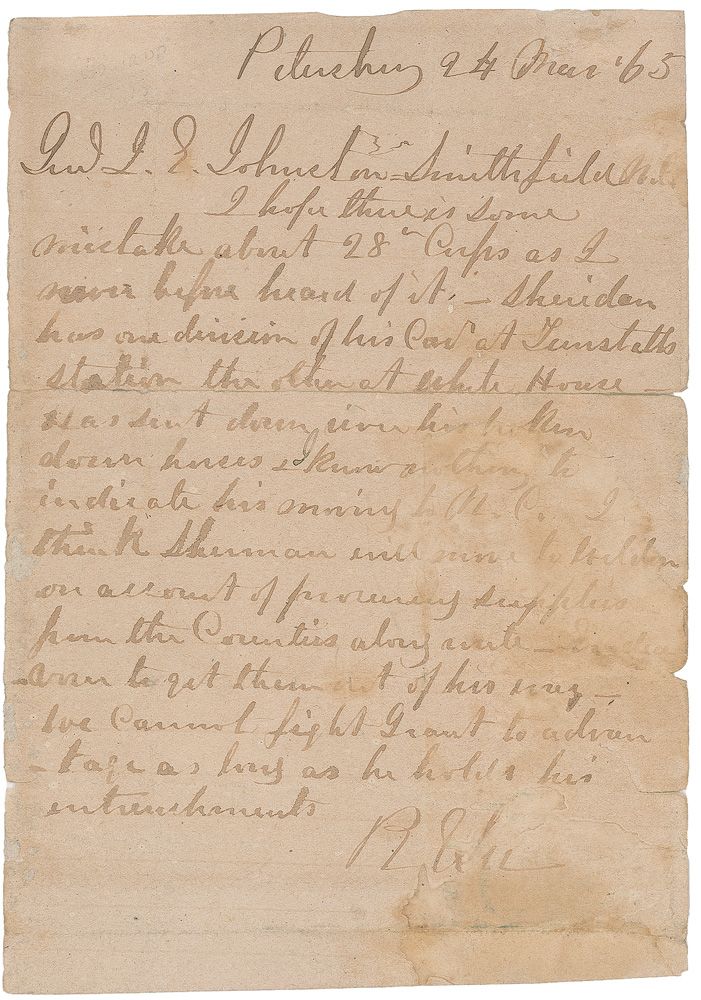 Petersburg 24 Mar '65
Genl J. E. Johnston = Smithfield N.C.
I hope there is some
mistake about 28th Corps as I
never before heard of it. — Sheridan
has one division of his Cav at Tunstalls
station the other at White House —
was sent down river his broken
down horses & I know nothing to
indicate his moving to N. C. — I
think Sherman will move to Weldon
on account of procuring supplies
from the Counties along route — Endea
-vour to get them out of his way —
We cannot fight Grant to advan
-tage as long as he holds his
entrenchments
R E Lee